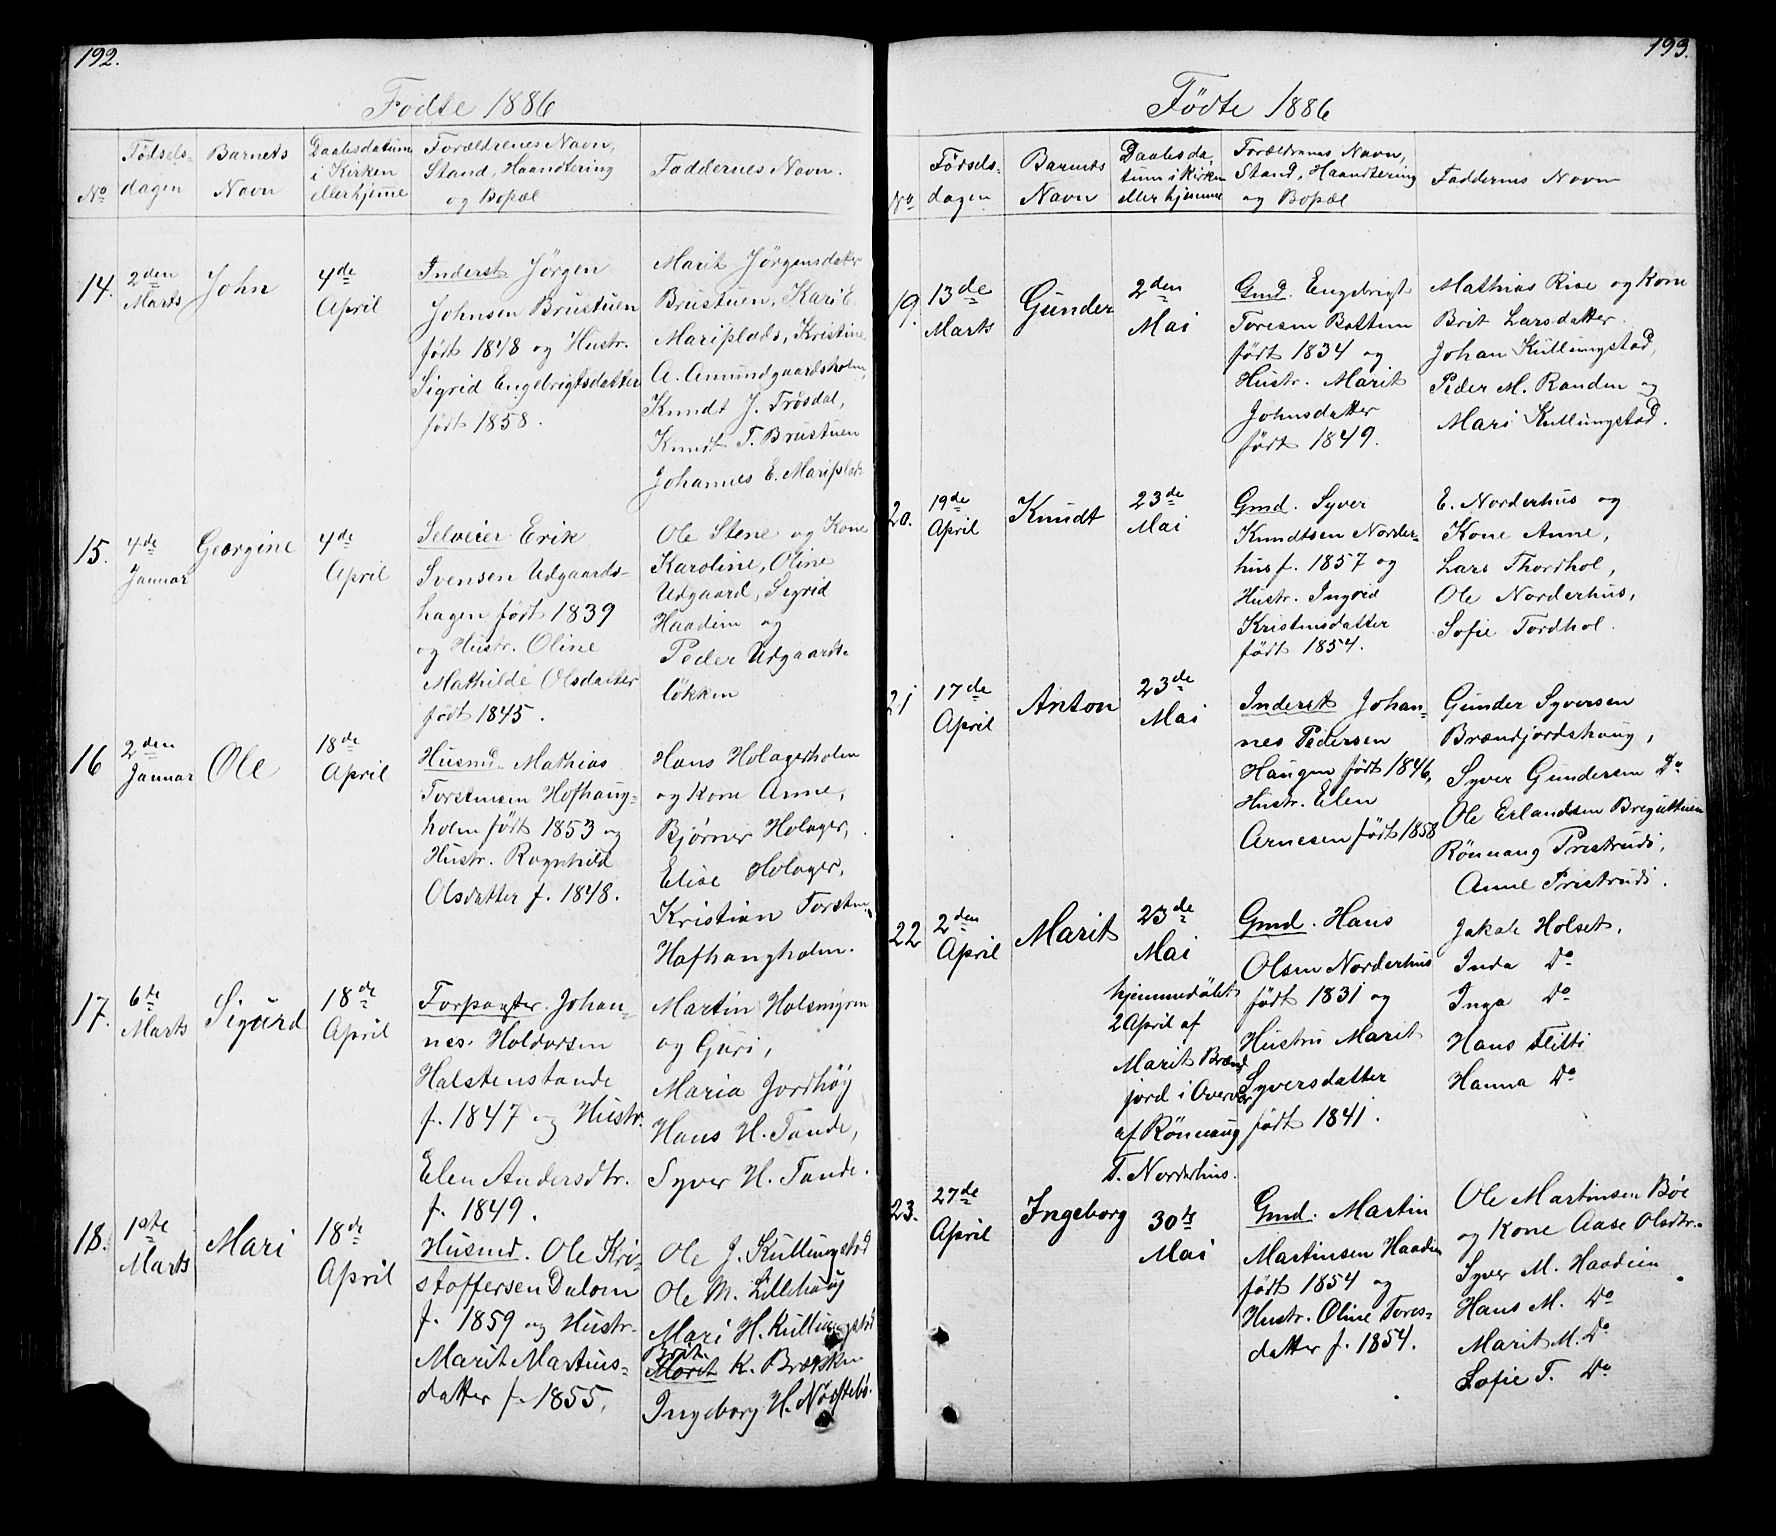 192.
Fødte 1886
No
Fødsels-
dagen
Barnets
Navn
Daabsdatum
i Kirken
eller hjemme
Forældrenes Navn,
Stand, Haandtering
og Bopæl
Faddernes Navn.
14.
2den
Marts
John
4de
April
Inderst Jörgen
Johnsen Brustuen
født 1848 og Hustr.
Sigrid Engebrigtsdatter
født 1858.
Marit Jörgensdater
Brustuen, Kari E.
Mariplads, Kristine
A. Amundgaardsholm,
Knudt J. Trösdal,
Knudt T. Brustuen
Johannes E. Mariplads
15.
4de
Januar
Georgine
4de
April
Selveier Erik
Svensen Udgaards-
hagen født 1839
og Hustr. Oline
Mathilde Olsdatter
født 1845.
Ole Stene og Kone
Karoline, Oline
Udgaard, Sigrid
Haadim og
Peder Udgaards-
lökken
16
2den
Januar
Ole
18de
April
Husmd. Mathias
Torstensen Hofhaug-
holm født 1853 og
Hustr. Ragnhild
Olsdatter f. 1848.
Hans Holagerholm
og Kone Anne,
Bjørner Holager,
Elise Holager,
Kristian Torsten
Hofhaugholm.
17.
6te
Marts
Sigurd
18de
April
Forpagter. Johan-
nes. Holdorsen
Halstenstande
f. 1847 og Hustr.
Elen Andersdtr.
f. 1849.
Martin Holsmyrn
og Guri,
Maria Jordhöy
Hans H. Tande,
Syver H. Tande.
18.
1ste
Marts
Mari
18de
April
Husmd. Ole Kri-
stoffersen Dalom
f. 1859 og Hustr.
Marit Martins-
datter f. 1855.
Ole J. Kullungstad
Ole M. Lillehaug
Mari H. Kullungstad
Brit
Marit K. Brækken
Ingeborg H. Nörstebö.
193.
Födte 1886
No
Fødsels-
dagen
Barnets
Navn
Daabsda-
tum i Kirken
eller hjemme
Forældrenes Navn,
Stand, Haandtering
og Bopæl
Faddernes Navn
19.
13de
Marts
Gunder
2den
Mai
Gmd. Engebrigt
Toresen Bottem
født 1834 og
Hustr. Marit
Johnsdatter
født 1849.
Mathias Rise og Kone
Brit Larsdatter.
Johan Kullungstad,
Peder M. Randen og
Mari Kullungstad.
20.
19de
April
Knudt
23de
Mai
Gmd. Syver
Knudtsen Norder-
hus f. 1857 og
Hustr. Ingrid
Kristensdatter
født 1854.
E. Norderhus og
Kone Anne,
Lars Thordhol,
Ole Norderhus,
Sofie Tordhol.
21
17de
April
Anton
23de
Mai
Inderst Johan-
nes Pedersen
Haugen født 1846,
Hustr. Elen
Arnesen født 1858
Gunder Syversen
Brændjordshaug,
Syver Gundersen Do
Ole Erlandsen Breguttuen
Rönnaug Pristruds,
Anne Pristruds.
22
2den
April
Marit
23de
Mai
hjemmedöbt
2 April af
Marit Brænd
jord i Overvær
af Rönnaug
T. Norderhus.
Gmd. Hans
Olsen Norderhus
født 1831 og
Hustru Marit
Syversdatter
født 1841.
Jakob Holset,
Inda Do
Inga Do
Hans Flitti
Hanna Do
23.
27de
April
Ingeborg
30te
Mai
Gmd. Martin
Martinsen Haadim
født 1854 og
Hustr. Oline Tores-
datter f. 1854.
Ole Martinsen Böe
og Kone Aase Olsdtr.
Syver M. Haadim
Hans M. Do
Marit M. Do
Sofie T. Do